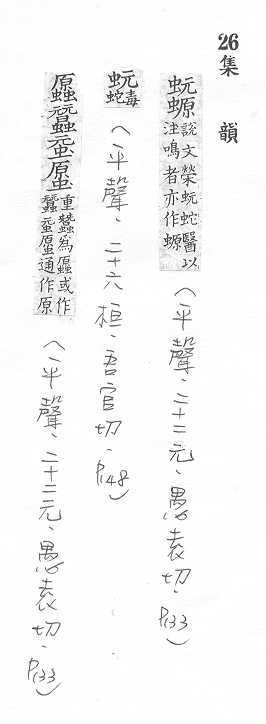 26 集韻
蚖螈 說文榮蚖蛇醫以注鳴者亦作螈 (平聲、二十二元、愚袁切、P133)
蚖 毒蛇 (平聲、二十六桓、吾官切、P148)
重蠶為原或作通作原 (平聲、二十二元、愚袁切、P133)